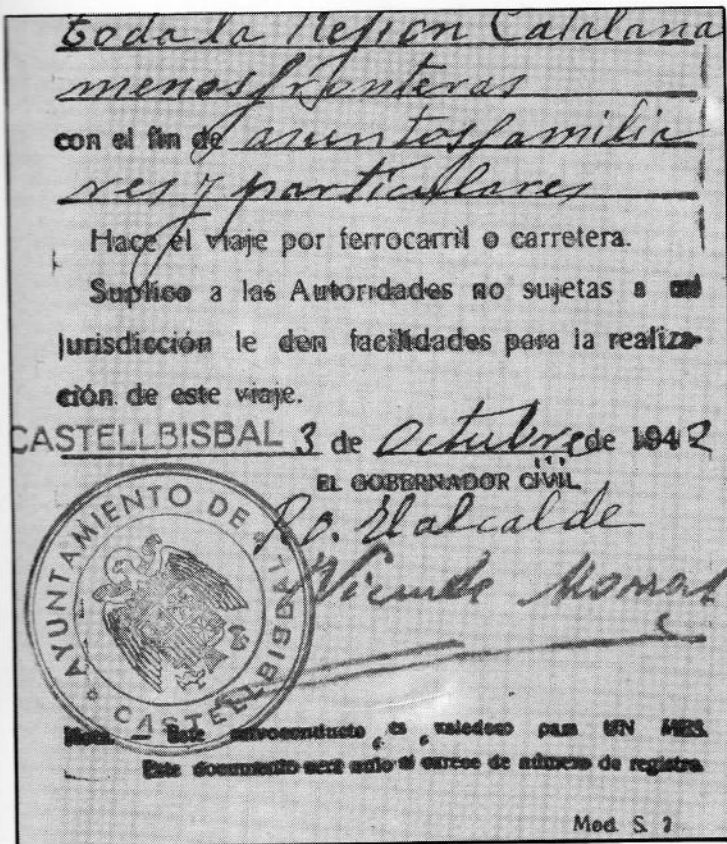 toda la Region Catalana
menos fronteras
con el fin de asuntos familia
res y particulares
Hace el viaje por ferrocarril o carretera.
Suplico a las Autoridades no sujetas a mi
jurisdicción le den facilidades para la realiza-
ción de este viaje.
CASTELLBISBAL 3 de Octubre de 1942
EL GOBERNADOR CIVIL
P.O. El alcalde
Vicente
AYUNTAMIENTO DE CASTELLBISBAL
Nota. — Este salvoconducto es valedero para UN MES.
Este documento será nulo si carece de número de registro.
Mod. S.